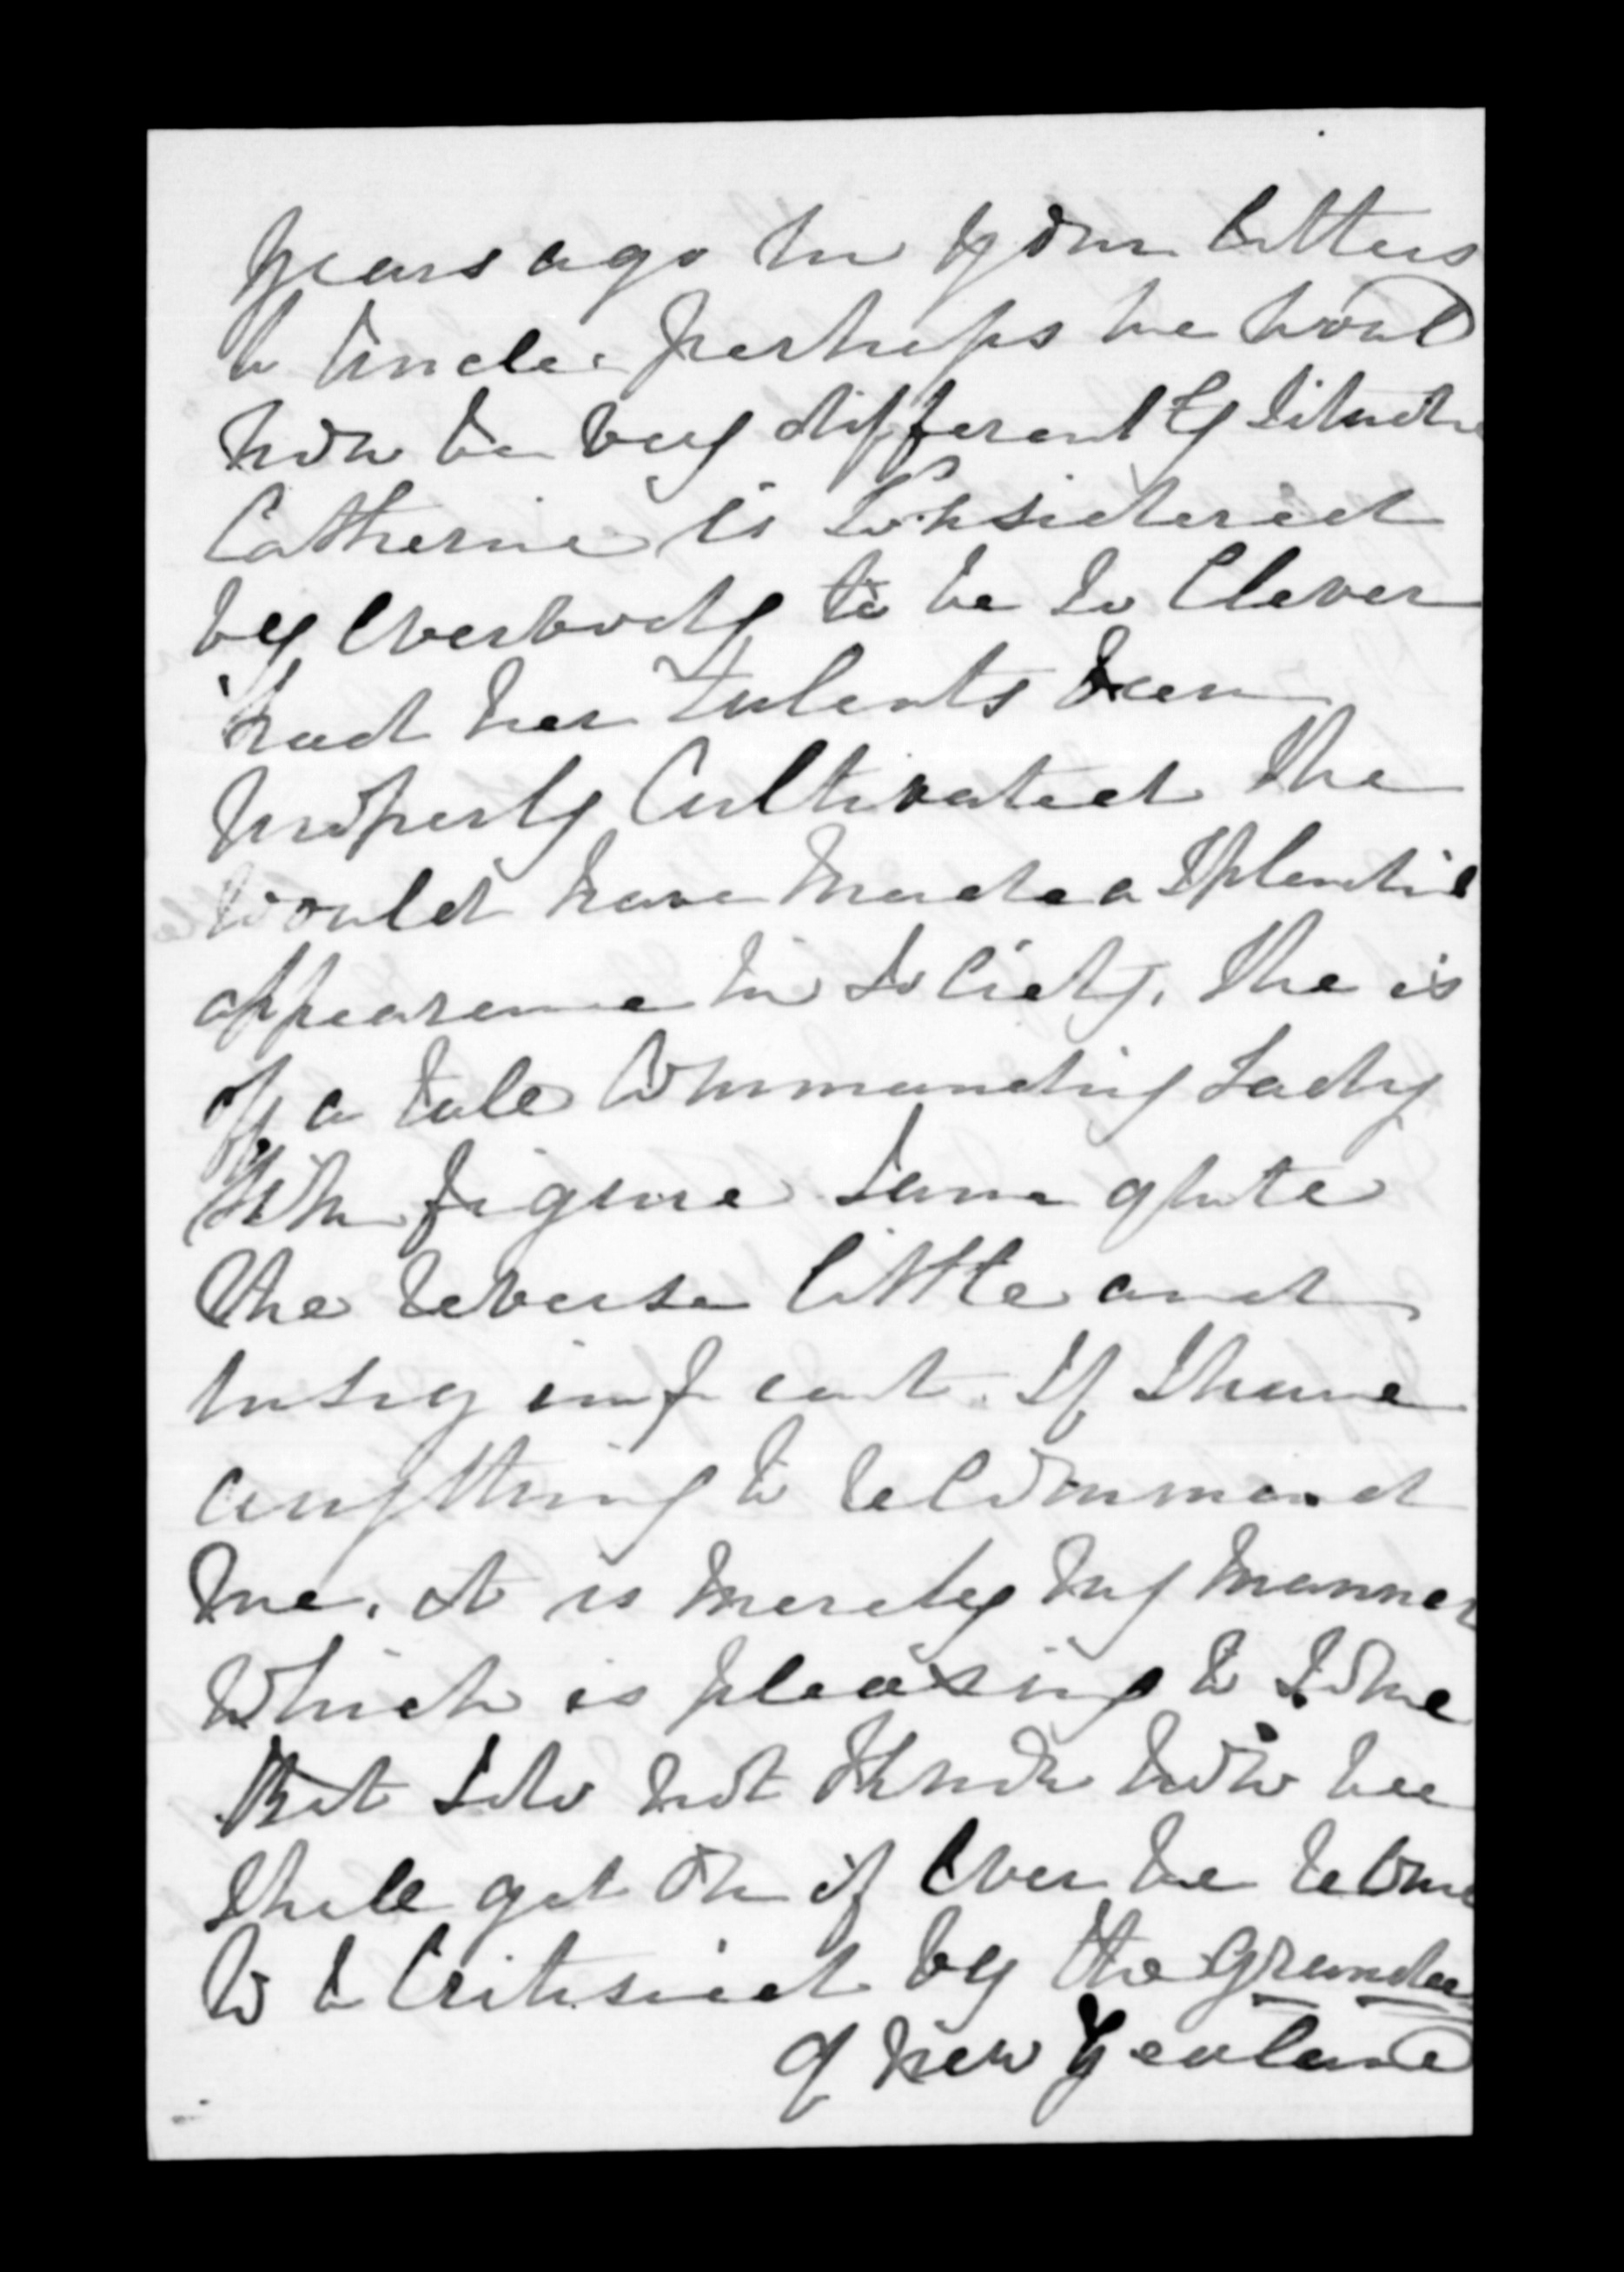 years ago in your letters
to Uncle. perhaps we would
now be very differently situate
Catherine is considered
by everbody to be so Clever
had her talents been
properly Cultivated She
would have made a Splendid
appearance in Society, She is
of a tale Commanding Lady
like figure I am quite
the reverse little and
insignificant. If I have
anything to recommend
me. it is merely my manner
which is pleasing to some
But I do not know how we
shall get on if ever we become
to be Critisised by the Grandees
of New Zealand